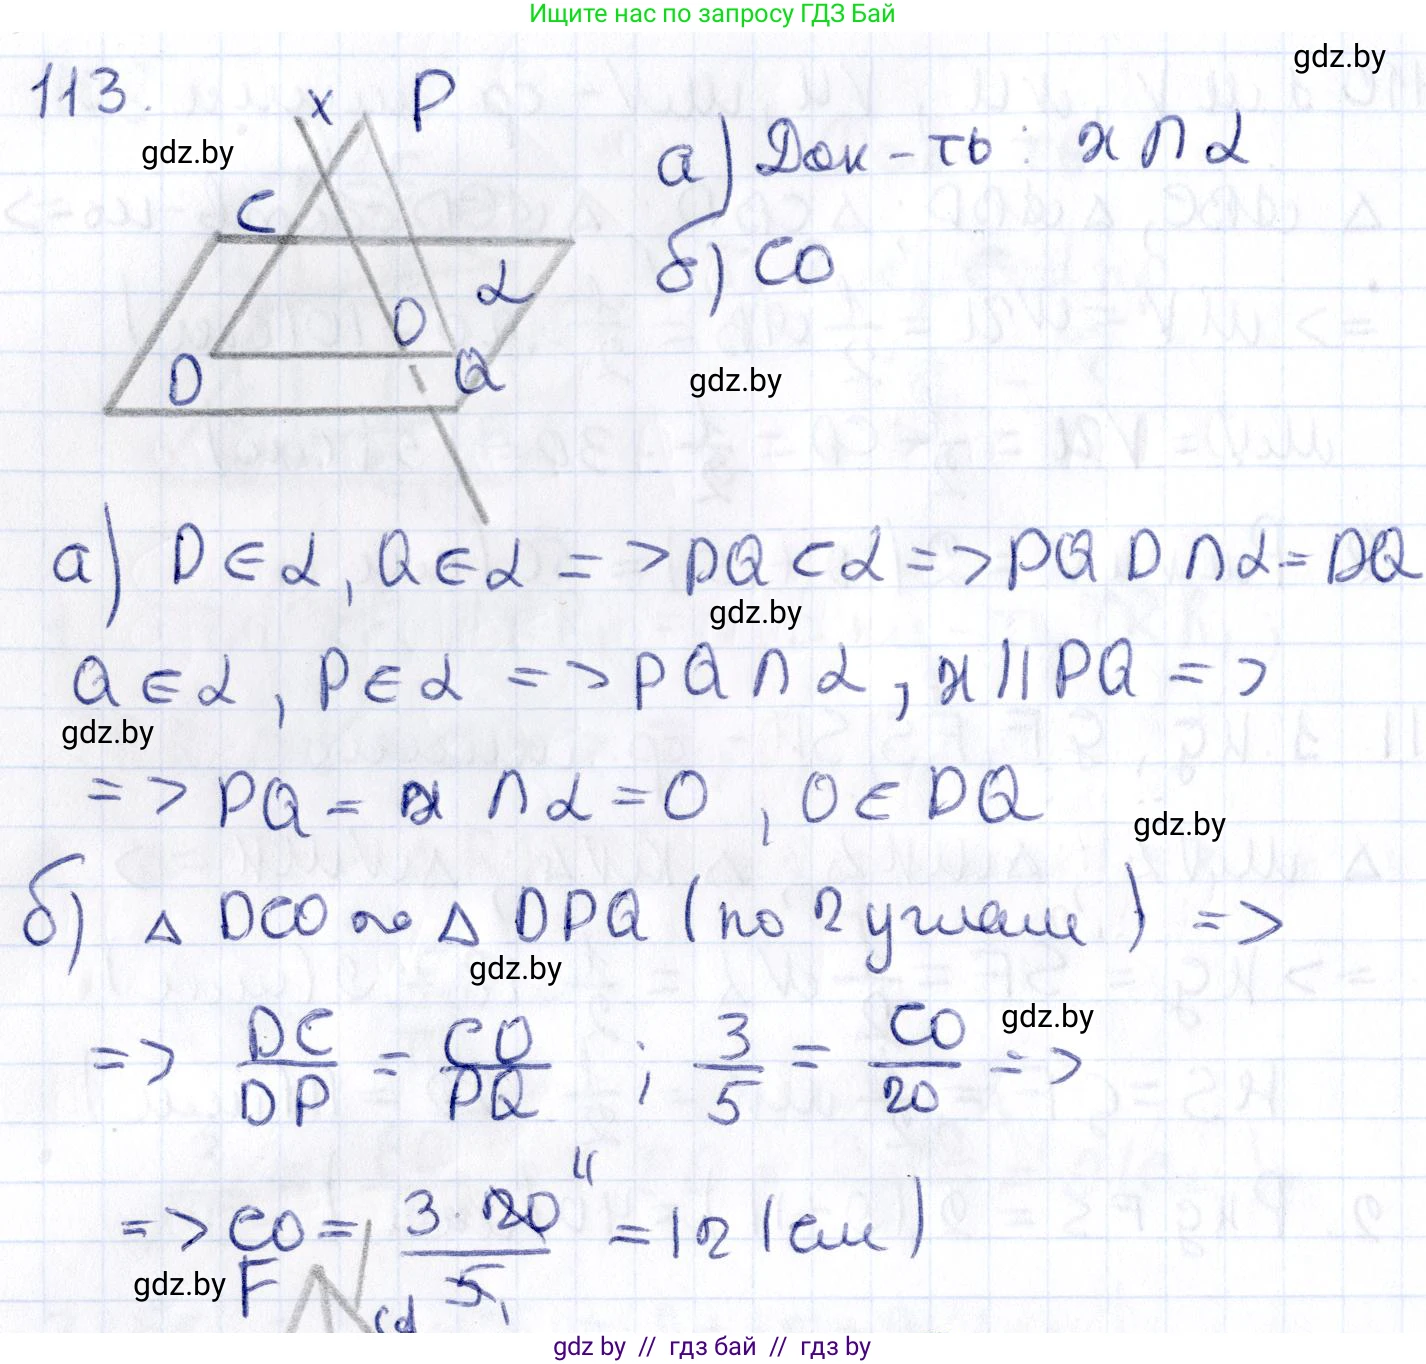 Ищите нас по запросу ГДЗ Бай
gdz.by
113.
x P
gdz.by
C
α
O
D Q
а) Док-ть: x ∩ α
б) CO
gdz.by
а) D ∈ α, Q ∈ α => DQ ⊂ α => PQD ∩ α = DQ
gdz.by
Q ∈ α, P ∈ α => PQ ∩ α, x || PQ =>
gdz.by
=> PQ = x ∩ α = O, O ∈ DQ
gdz.by
б) △ DCO ~ △ DPQ (по 2 углам) =>
gdz.by
=> DC/DP = CO/PQ ; 3/5 = CO/20 =>
gdz.by
=> CO = 3·20/5 = 12 (см)
4
1
gdz.by
F
gdz.by // гдз бай // гдз by